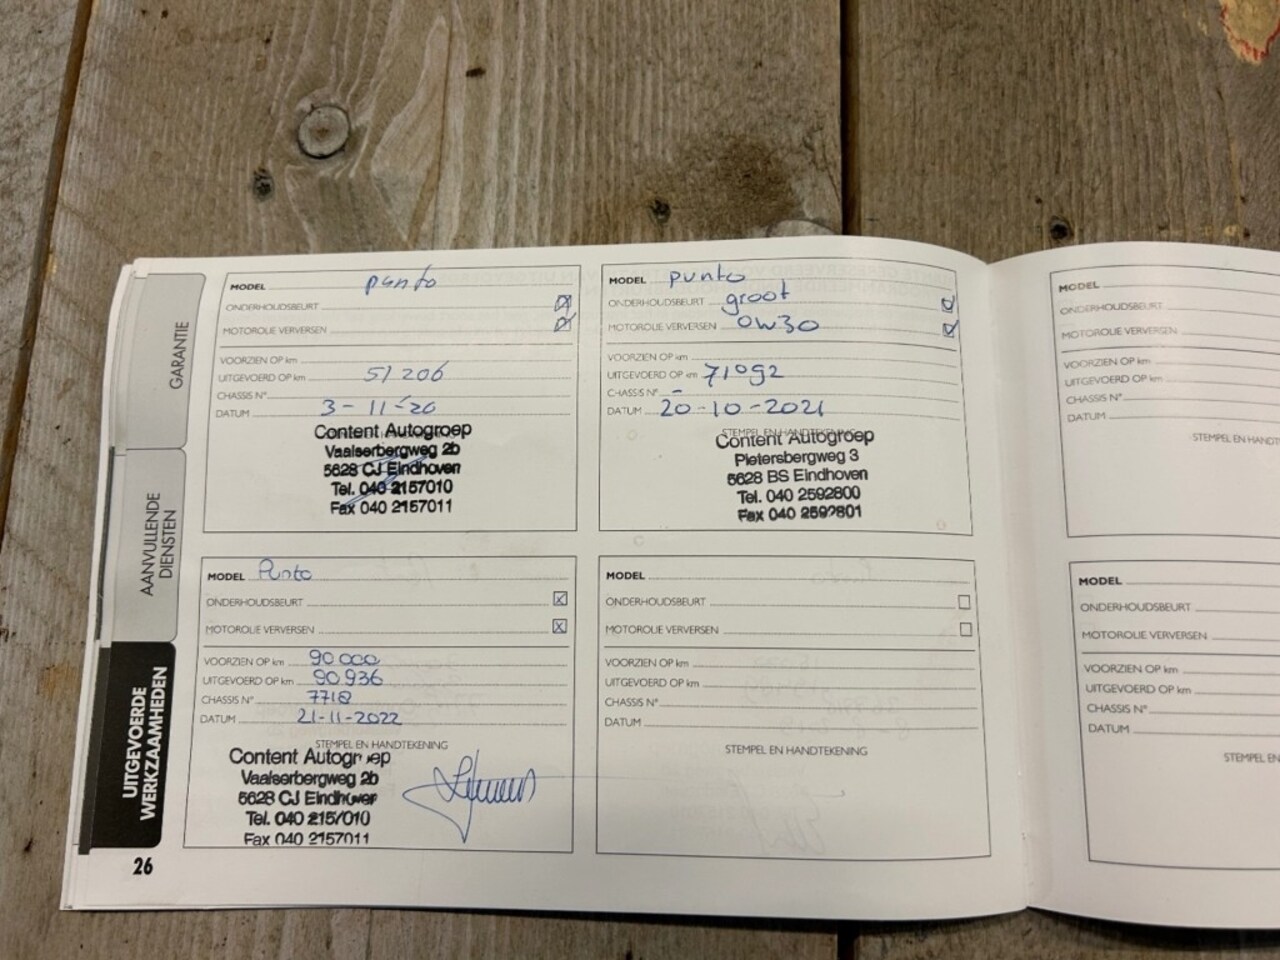 GARANTIE
AANVULLENDE
DIENSTEN
UITGEVOERDE
WERKZAAMHEDEN
26
MODEL punto
ONDERHOUDSBEURT
MOTOROLIE VERVERSEN
VOORZIEN OP km
UITGEVOERD OP km 51206
CHASSIS N°
DATUM 3-11-20
Content Autogroep
Vaalserbergweg 2b
5628 CJ Eindhoven
Tel. 040 2157010
Fax 040 2157011
MODEL punto
ONDERHOUDSBEURT groot
MOTOROLIE VERVERSEN 0W30
VOORZIEN OP km
UITGEVOERD OP km 71092
CHASSIS N°
DATUM 20-10-2021
STEMPEL EN HANDTEKENING
Content Autogroep
Pietersbergweg 3
5628 BS Eindhoven
Tel. 040 2592800
Fax 040 2592801
MODEL Punto
ONDERHOUDSBEURT X
MOTOROLIE VERVERSEN X
VOORZIEN OP km 90000
UITGEVOERD OP km 90936
CHASSIS N° 7718
DATUM 21-11-2022
STEMPEL EN HANDTEKENING
Content Autogroep
Vaalserbergweg 2b
5628 CJ Eindhoven
Tel. 040 2157010
Fax 040 2157011
MODEL
ONDERHOUDSBEURT
MOTOROLIE VERVERSEN
VOORZIEN OP km
UITGEVOERD OP km
CHASSIS N°
DATUM
STEMPEL EN HANDTEKENING
MODEL
ONDERHOUDSBEURT
MOTOROLIE VERVERSEN
VOORZIEN OP km
UITGEVOERD OP km
CHASSIS N°
DATUM
STEMPEL EN HANDT
MODEL
ONDERHOUDSBEURT
MOTOROLIE VERVERSEN
VOORZIEN OP km
UITGEVOERD OP km
CHASSIS N°
DATUM
STEMPEL EN